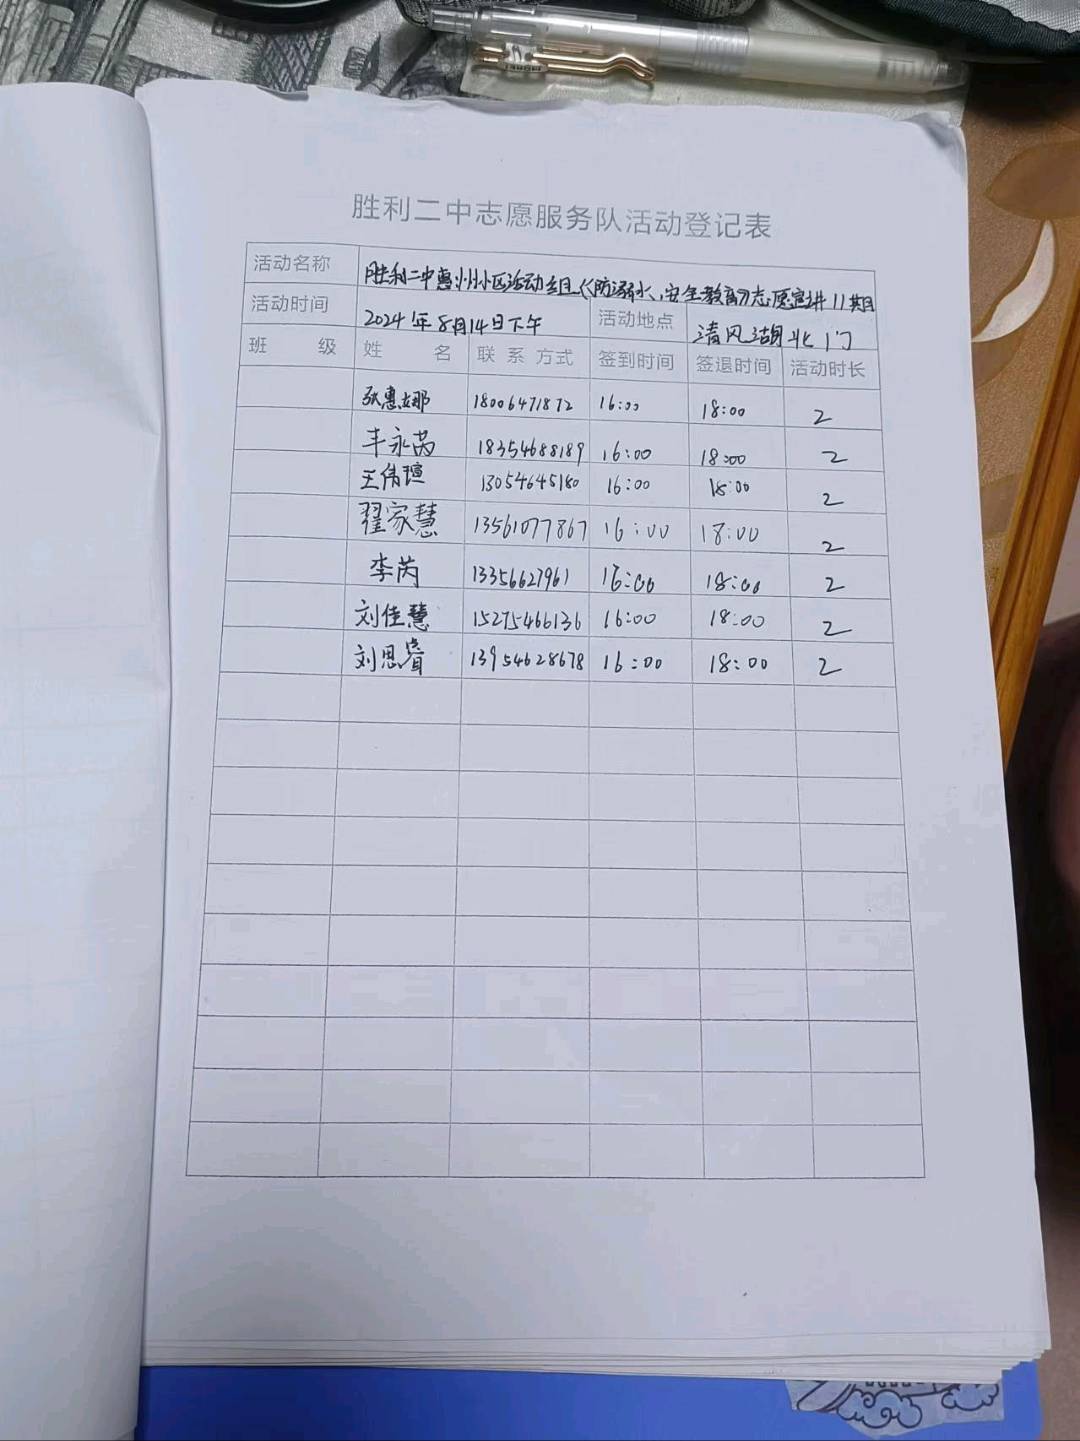 胜利二中志愿服务队活动登记表
活动名称 胜利二中惠州小区活动组《防溺水、安全教育》志愿宣讲11期
活动时间 2024年8月14日下午 活动地点 清风湖北门
班 级 姓 名 联系方式 签到时间 签退时间 活动时长
张惠娜 18006471872 16:00 18:00 2
丰永芮 18354688189 16:00 18:00 2
王倩瑄 13054645180 16:00 18:00 2
翟家慧 13561077867 16:00 18:00 2
李芮 13356627961 16:00 18:00 2
刘佳慧 15275466136 16:00 18:00 2
刘恩睿 13954628678 16:00 18:00 2